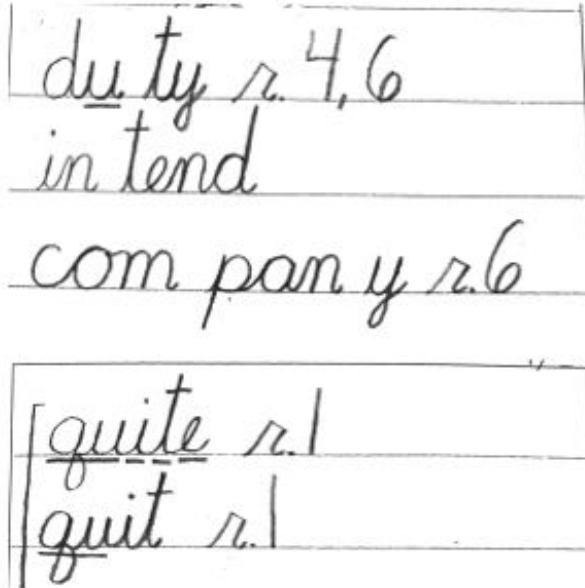 du ty r. 4, 6
in tend
com pan y r. 6
quite r. 1
quit r. 1